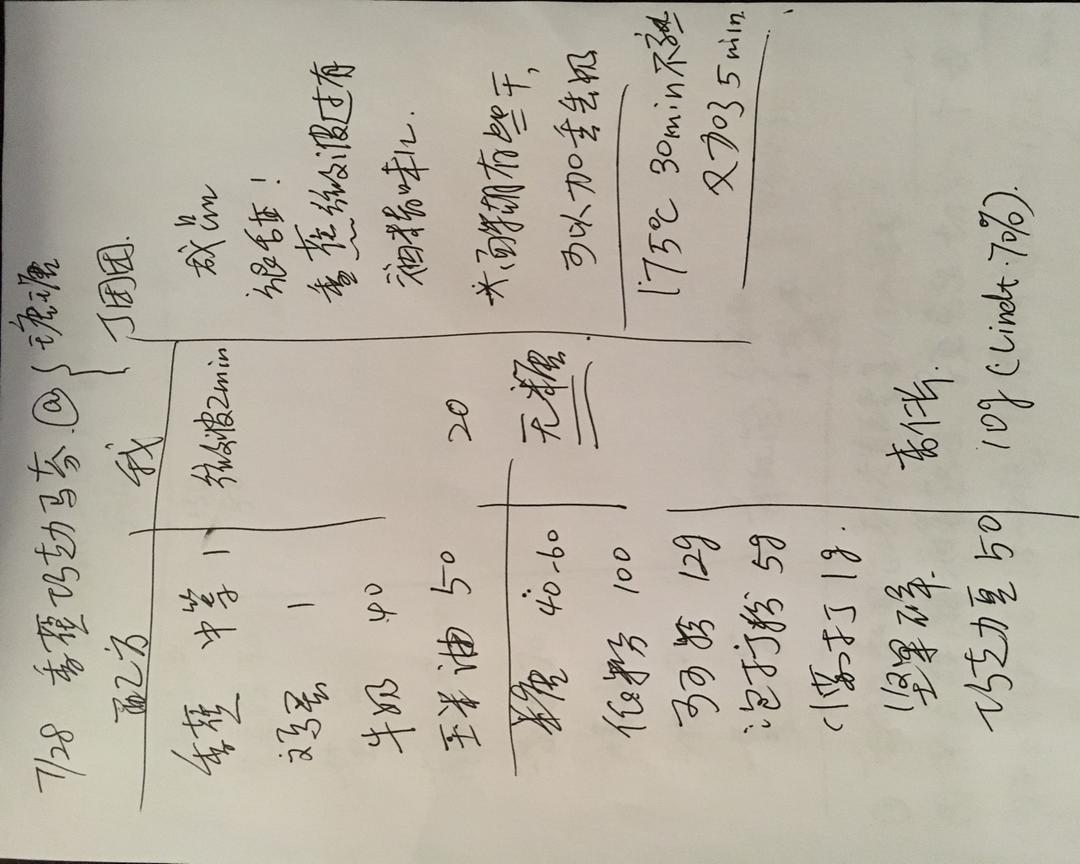 7/28 香蕉巧克力马芬.@ { 璐璐
丁团团.
配方 我
香蕉 中等 1 微波2min
鸡蛋 1
牛奶 40
玉米油 50 20
糖 40-60 无糖.
低粉 100
可可粉 12g
泡打粉 5g
小苏打 1g.
坚果碎. 素伴长.
巧克力豆 50 10g (Lindt.70%).
成品
很香!
香蕉微波过有
酒精味儿.
米酒糊有些干,
可以加点牛奶
175℃ 30min不熟
又加35min.